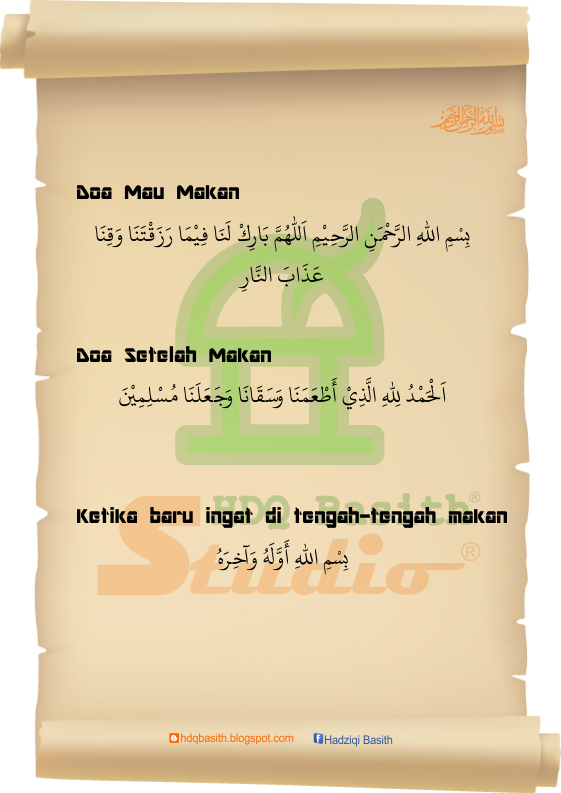 بسم الله الرحمن الرحيم
Doa Mau Makan
بِسْمِ اللهِ الرَّحْمَنِ الرَّحِيْمِ اَللّٰهُمَّ بَارِكْ لَنَا فِيْمَا رَزَقْتَنَا وَقِنَا
عَذَابَ النَّارِ
Doa Setelah Makan
اَلْحَمْدُ لِلّٰهِ الَّذِيْ أَطْعَمَنَا وَسَقَانَا وَجَعَلَنَا مُسْلِمِيْنَ
HDQ Basith®
Ketika baru ingat di tengah-tengah makan
Studio®
بِسْمِ اللهِ أَوَّلَهُ وَآخِرَهُ
hdqbasith.blogspot.com Hadziqi Basith